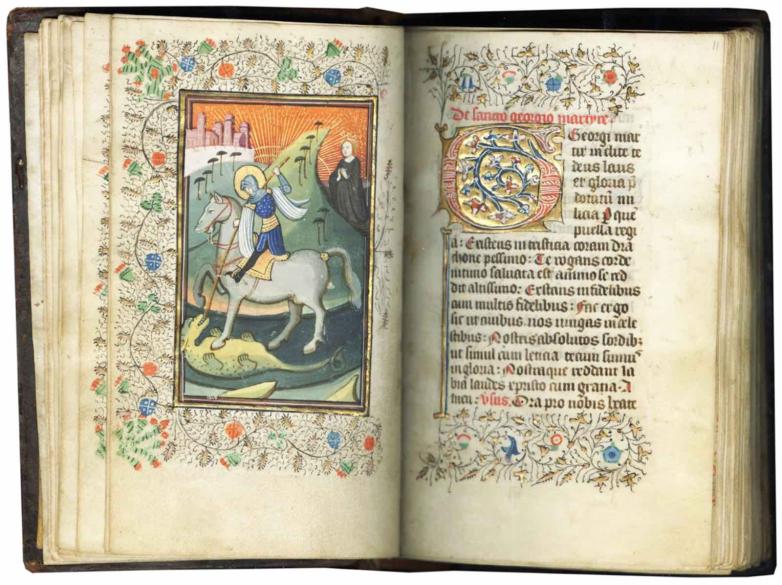 11
De sancto georgio martyre
Georgi mar
tir inclite te
decus laus
et gloria p
dotatum mi
licia Per que
puella regi
a: Existens in tristicia coram dra
chone pessimo: Te rogans corde
intimo salvata est animo se red
dit altissimo: Existans infidelibus
cum multis fidelibus: Fac ergo
sic ut civibus nos iungas in cele
stibus: Nostris absolutos sordib;
ut simul cum leticia tecum simus
in gloria: Nostraque reddant la
bia laudes cristo cum gratia. A
men: Vsus. Ora pro nobis beate